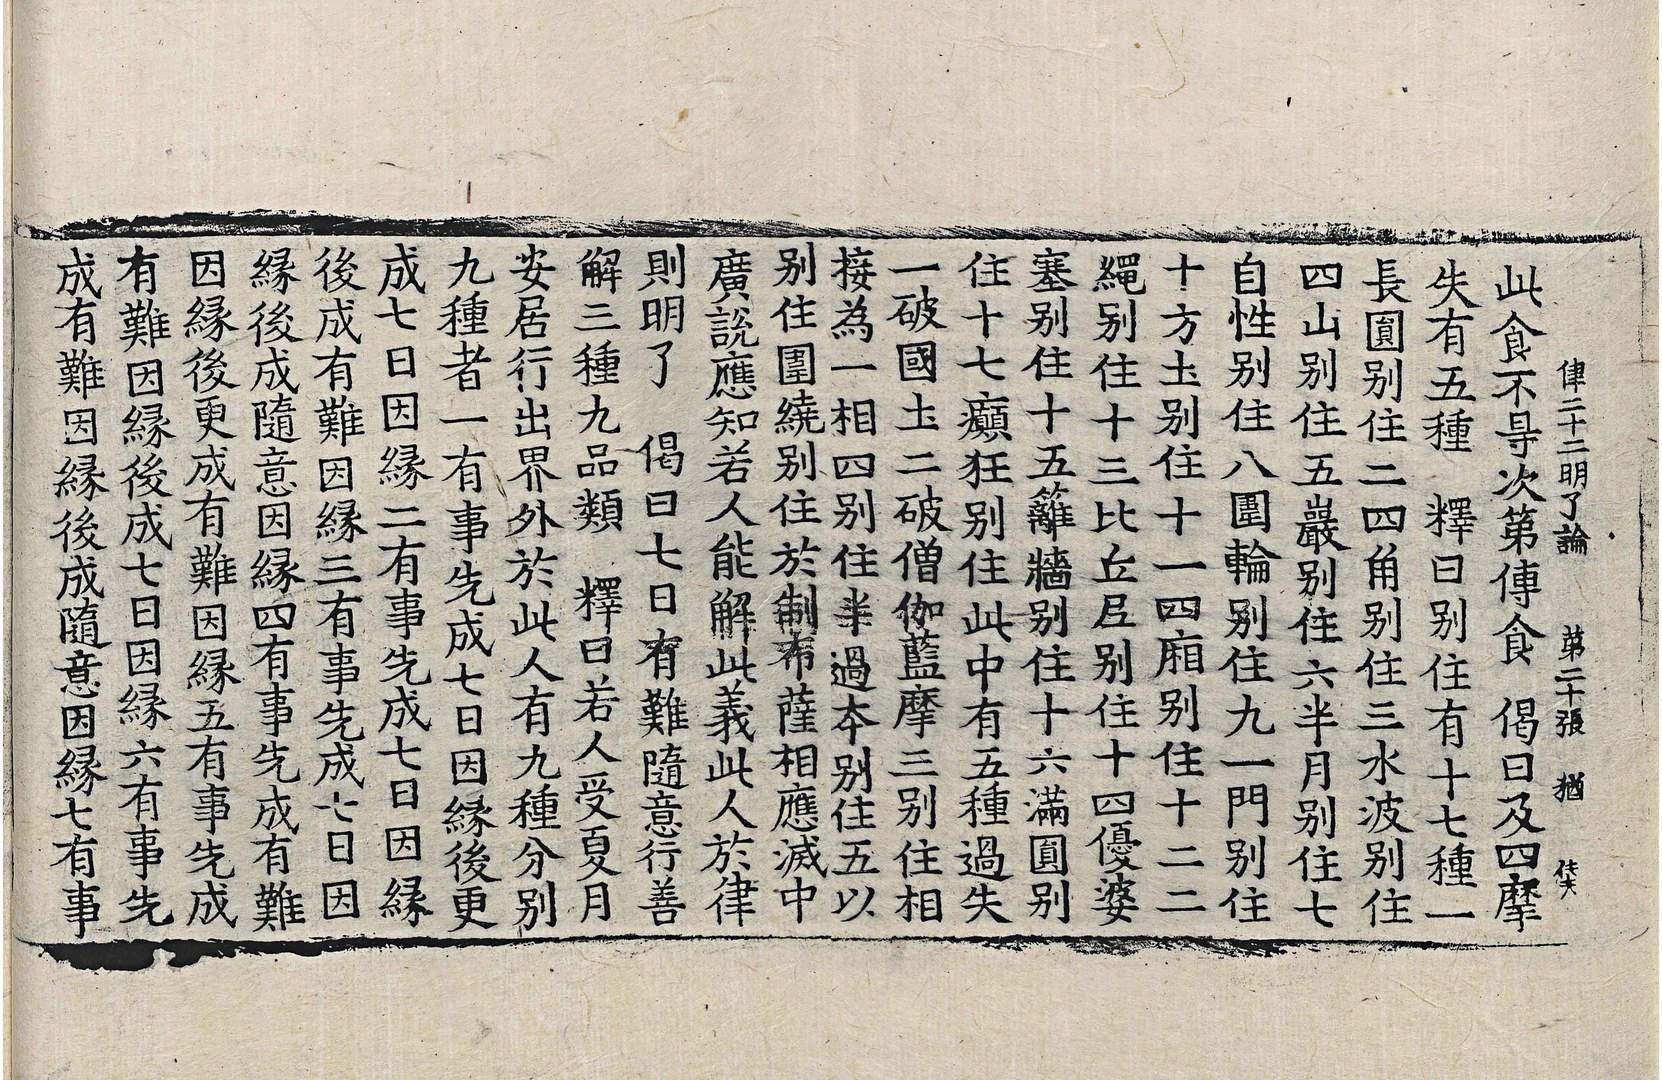 律二十二明了論 第二十張 猶
此食不㝵次第傳食 偈曰及四摩
失有五種 釋曰别住有十七種一
長圓别住二四角别住三水波别住
四山别住五巖别住六半月别住七
自性别住八圍輪别住九一門别住
十方土别住十一四廂别住十二二
繩别住十三比丘尼别住十四優婆
塞别住十五籬牆别住十六滿圓别
住十七癲狂别住此中有五種過失
一破國土二破僧伽藍摩三别住相
接為一相四别住半過本别住五以
别住圍繞别住於制布薩相應滅中
廣説應知若人能解此義此人於律
則明了 偈曰七日有難隨意行善
解三種九品類 釋曰若人受夏月
安居行出界外於此人有九種分别
九種者一有事先成七日因縁後更
成七日因縁二有事先成七日因縁
後成有難因縁三有事先成七日因
縁後成隨意因縁四有事先成有難
因縁後更成有難因縁五有事先成
有難因縁後成七日因縁六有事先
成有難因縁後成隨意因縁七有事